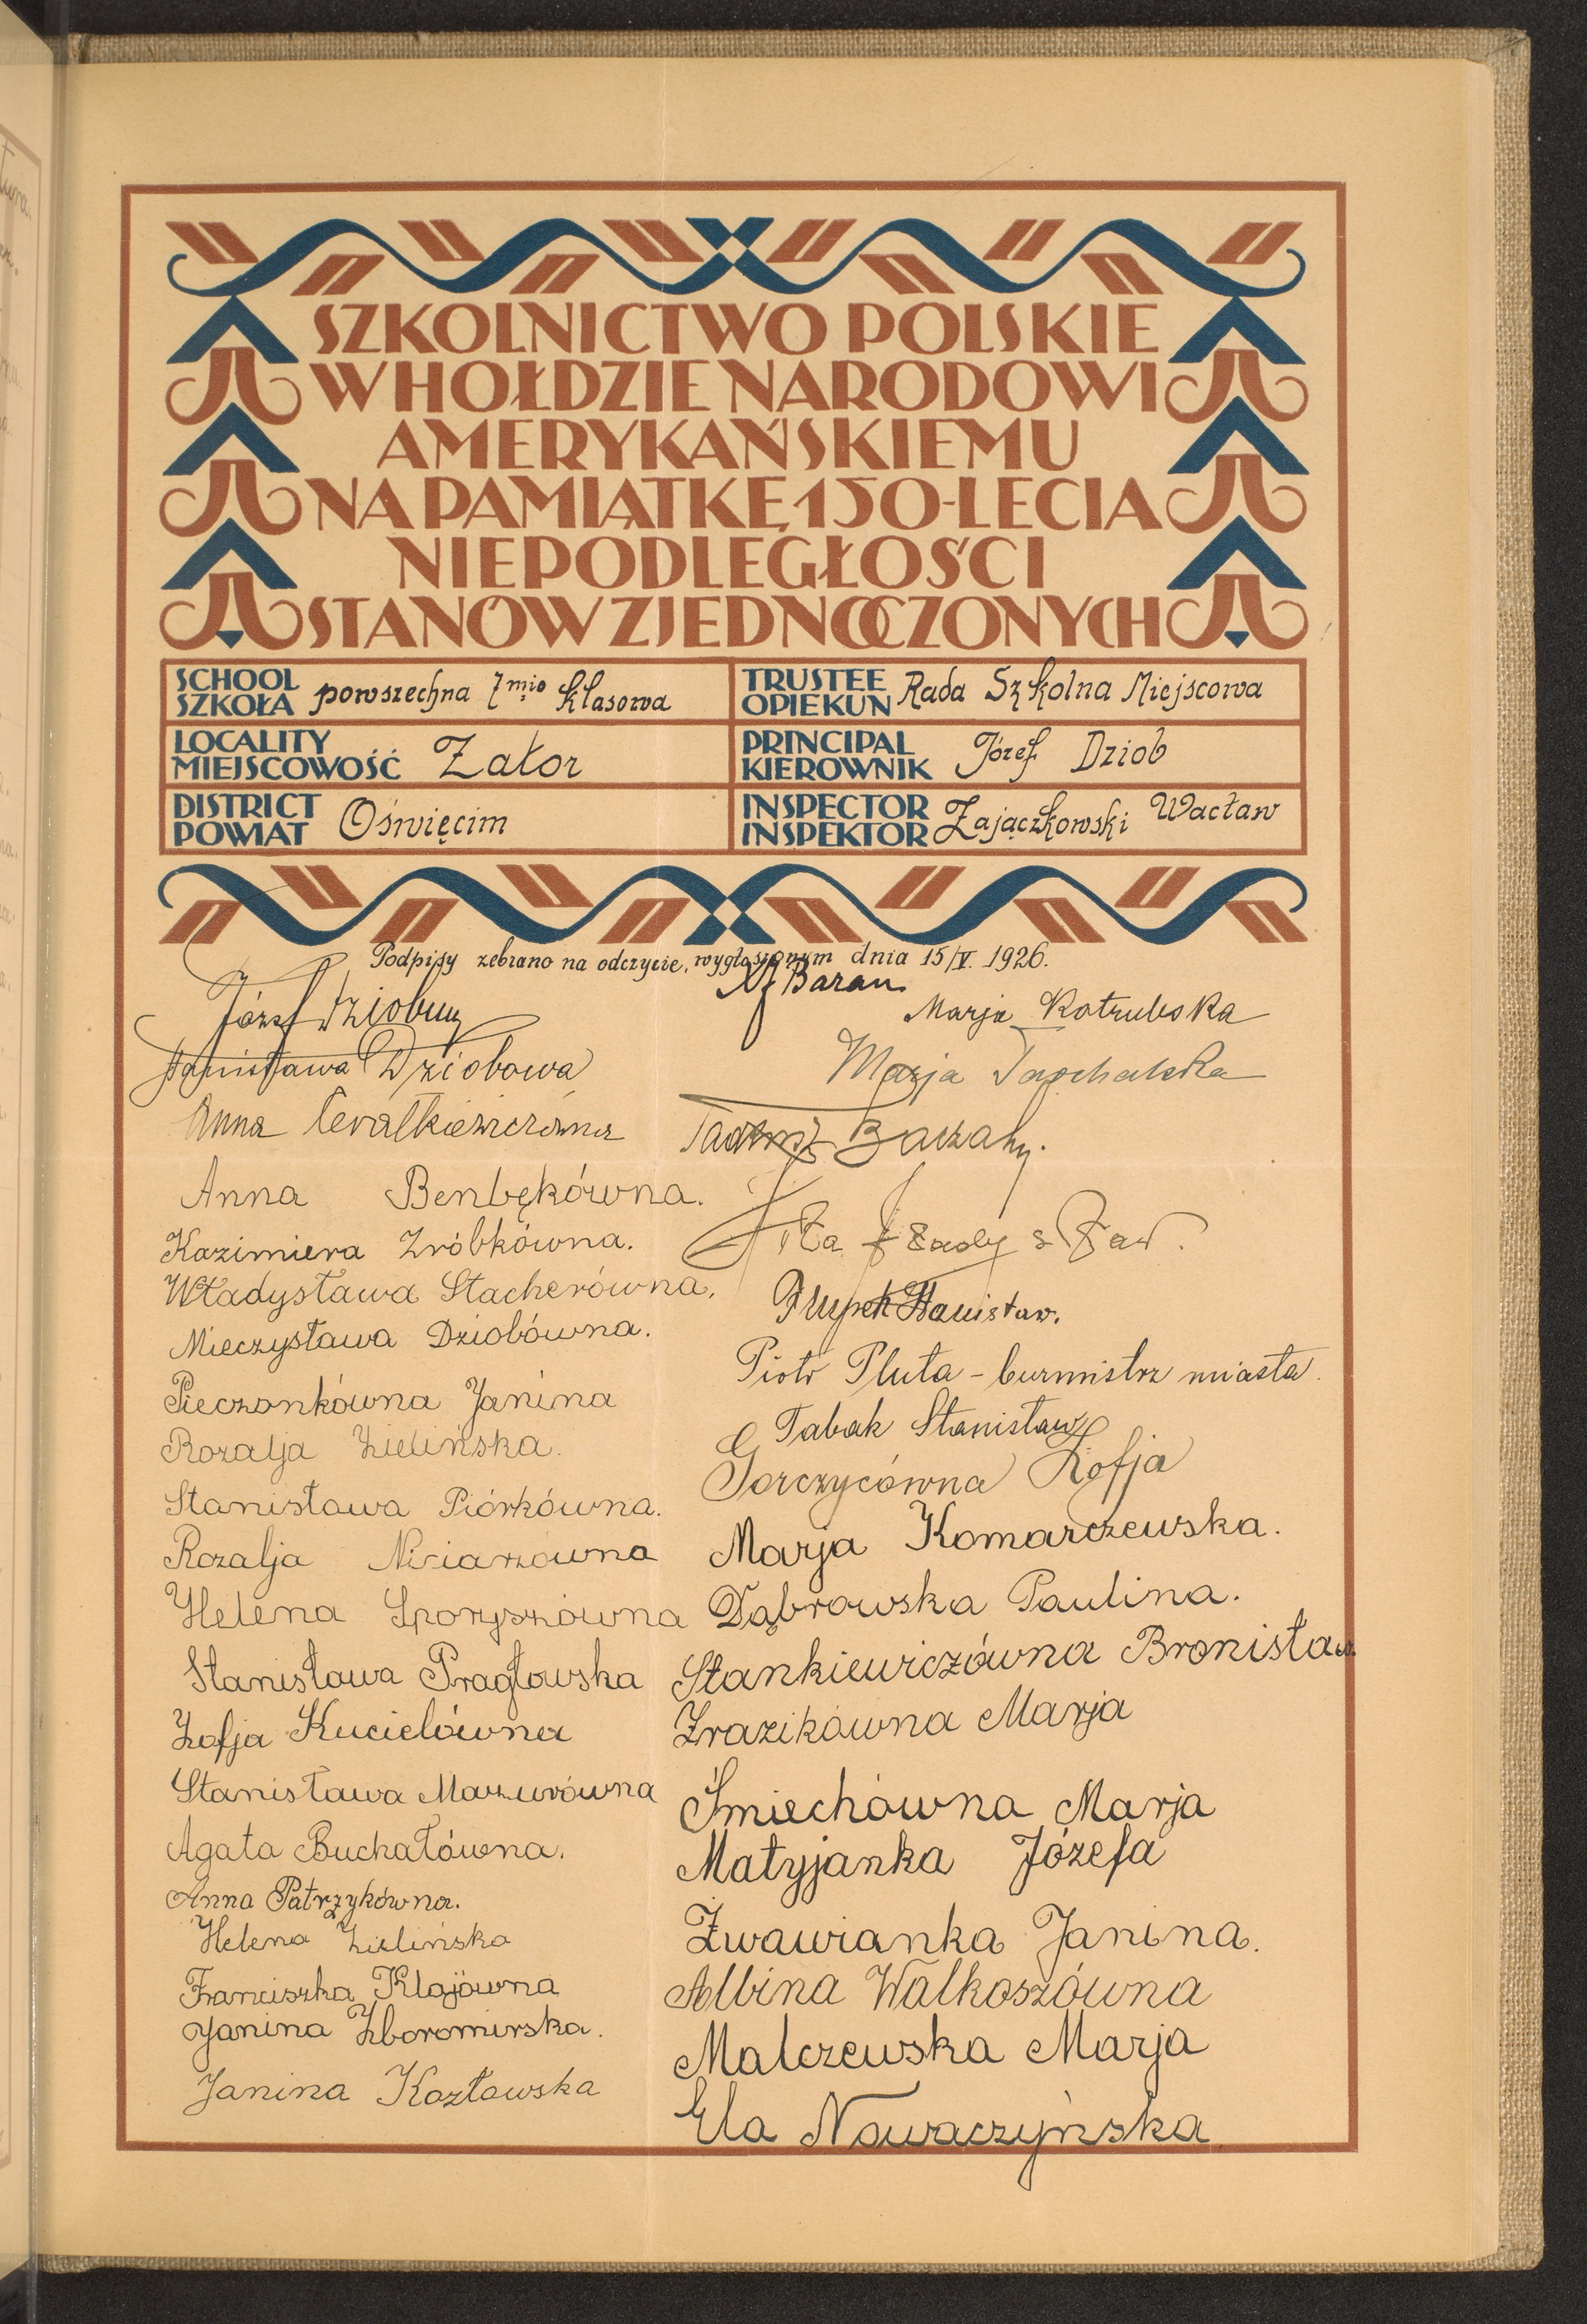 SZKOLNICTWO POLSKIE
W HOŁDZIE NARODOWI
AMERYKAŃSKIEMU
NA PAMIĄTKĘ 150-LECIA
NIEPODLEGŁOŚCI
STANÓW ZJEDNOCZONYCH
SCHOOL
SZKOŁA powszechna 7mio klasowa
TRUSTEE
OPIEKUN Rada Szkolna Miejscowa
LOCALITY
MIEJSCOWOŚĆ Zator
PRINCIPAL
KIEROWNIK Józef Dziob
DISTRICT
POWIAT Oświęcim
INSPECTOR
INSPEKTOR Zajączkowski Wacław
Podpisy zebrano na odczycie, wygłoszonym dnia 15/V. 1926.
Józef
Stanisława Dziobowa
Anna
Anna Benbękówna.
Kazimiera Zróbkówna.
Władysława Stacherówna.
Mieczysława Dziobówna.
Pieczonkówna Janina
Rozalja Zielińska.
Stanisława Piórkówna.
Rozalja
Helena Sporyszówna
Stanisława Pragłowska
Zofja Kucielówna
Stanisława Mazurówna
Agata Buchałówna.
Anna Patrzykówna.
Helena Zielińska
Franciszka Klajówna
Janina Zboromirska.
Janina Kozłowska
Baran
Marja
Marja
Stanisław.
Piotr Pluta - burmistrz miasta.
Tabak Stanisław
Gorczycówna Zofja
Marja Komarczewska.
Dąbrowska Paulina.
Stankiewiczówna Bronisław.
Zrazikówna Marja
Śmiechówna Marja
Matyjanka Józefa
Żwawianka Janina.
Albina Walkoszówna
Malczewska Marja
Ela Nowaczyńska